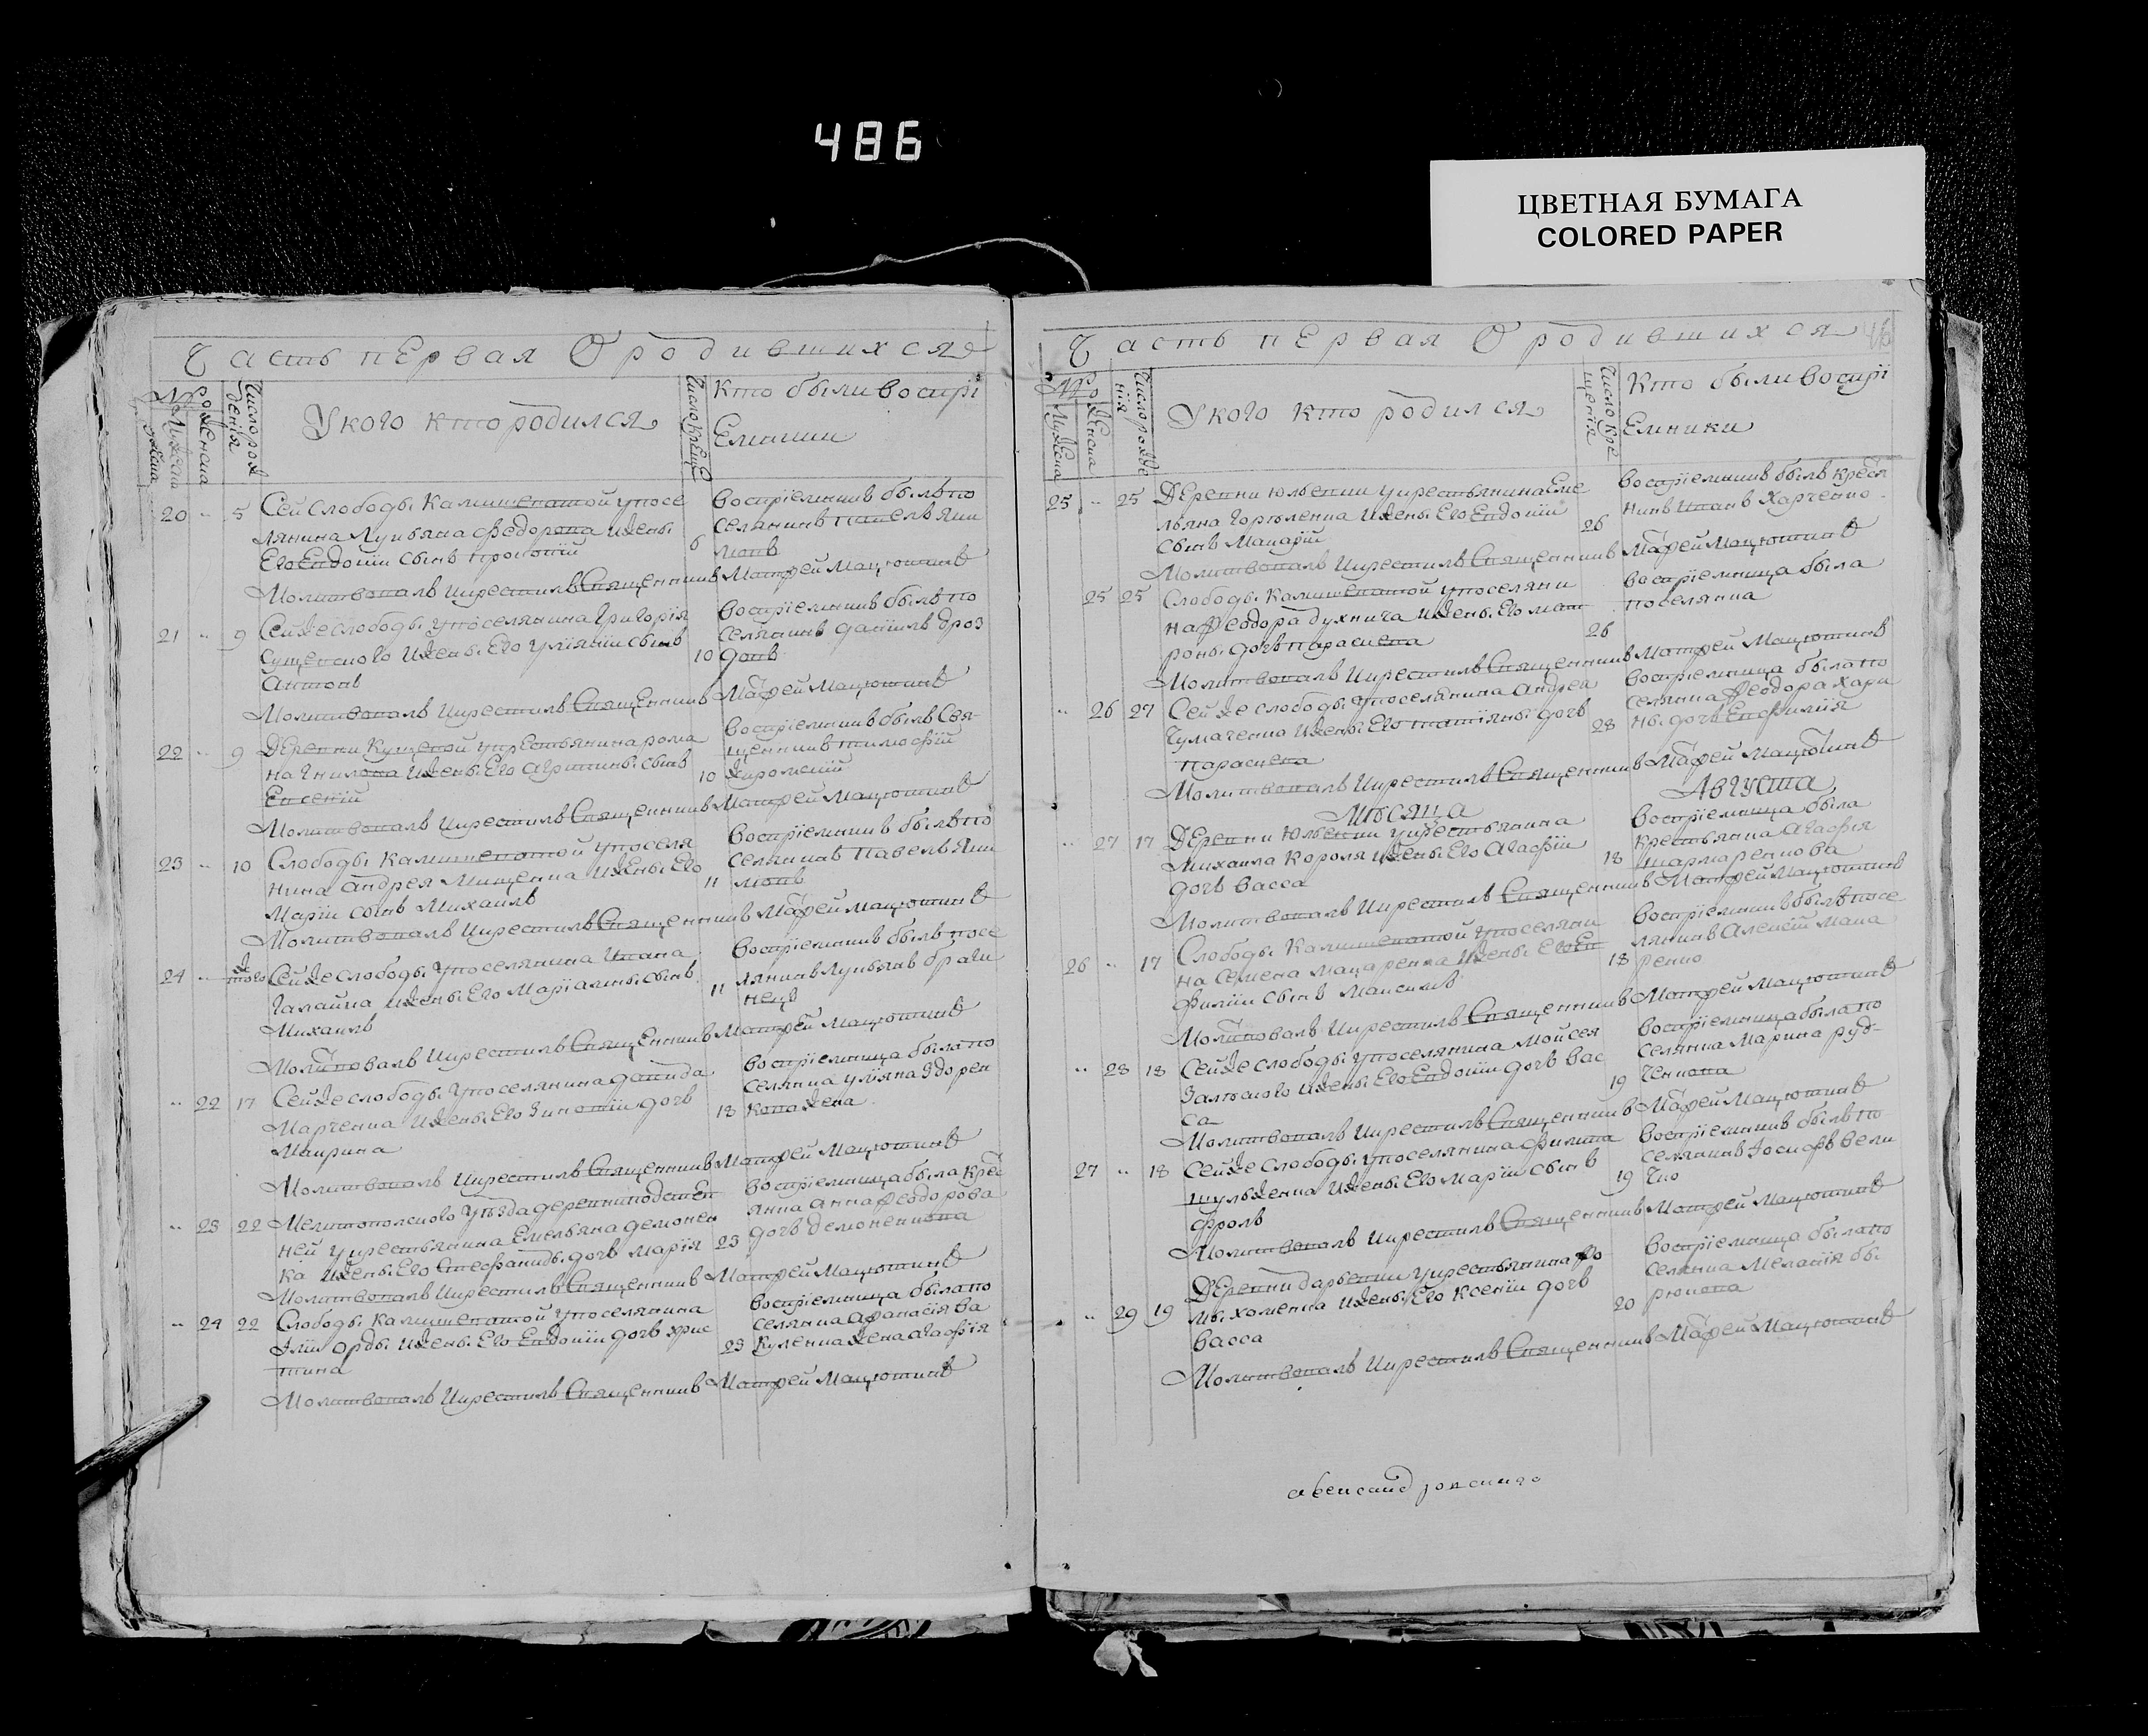 486
ЦВЕТНАЯ БУМАГА
COLORED PAPER
Часть первая О родившихся
Число рож
дения
У кого кто родился
Число креще
Кто были воспрi
емники
20 .. 5 Сей Слободы Калитеватой у посе
лянина Лукьяна Федорова и жены
Его Евдокiи сынъ Прокопiй
6
воспрiемникъ былъ по
селянинъ Павелъ Яки
мовъ
Молитвовалъ и крестилъ Священникъ Матфей Мацютинъ
21 .. 9 Сей же слободы у поселянина Григорiя
Сущевского и жены Его Улiянiи сынъ
Антонъ
10
воспрiемникъ былъ по
селянинъ Данiилъ Дроз
довъ
Молитвовалъ и крестилъ Священникъ Матфей Мацютинъ
22 .. 9 Деревни Кущевой у крестьянина Рома
на Гнилова и жены Его Агрипины сынъ
Евсевiй
10
воспрiемникъ былъ Свя-
щенникъ Тимофiй
Молитвовалъ и крестилъ Священникъ Матфей Мацютинъ
23 .. 10 Слободы Калитеватой у поселя
нина Андрея Мищенка и жены Его
Марiи сынъ Михаилъ
11
воспрiемникъ былъ по
селянинъ Павелъ Яки
мовъ
Молитвовалъ и крестилъ Священникъ Матфей Мацютинъ
24 .. тогож Сей же слободы у поселянина Ивана
Галайка и жены Его Марiамны сынъ
Михаилъ
11
воспрiемникъ былъ посе
лянинъ Лукьянъ Браги
нецъ
Молитвовалъ и крестилъ Священникъ Матфей Мацютинъ
.. 22 17 Сей же слободы у поселянина Давида
Марченка и жены Его Зиновiи дочь
Маврина
18
воспрiемница была по
селянка Улiяна Здорен
кова жена
Молитвовалъ и крестилъ Священникъ Матфей Мацютинъ
.. 23 22 Мелитопольского уѣзда деревни Подстеп
ней у крестьянина Емельяна Демонен
ка и жены Его Стефаниды дочь Марiя
23
воспрiемница была крес
янка Анна Феодорова
дочь Демоненкова
Молитвовалъ и крестилъ Священникъ Матфей Мацютинъ
.. 24 22 Слободы Калитеватой у поселянина
Iлiи Орды и жены Его Евдокiи дочь Хрис
тина
23
воспрiемница была по
селянка Афанасiя Ва
куленка жена Агафiя
Молитвовалъ и крестилъ Священникъ Матфей Мацютинъ
Часть первая О родившихся 46
Число рожде
нiя
У кого кто родился
Число кре
щенiя
Кто были воспрi
емники
25 .. 25 Деревни Юльевки у крестьянина Еме
льяна Горпленка и жены Его Евдокiи
сынъ Макарiй
26
воспрiемникъ былъ крестя
нинъ Иванъ Харченко
Молитвовалъ и крестилъ Священникъ Матфей Мацютинъ
25 25 Слободы Калитеватой у поселяни
на Феодора Духнича и жены Его Мат
роны дочь Параскева
26
воспрiемница была
поселянка
Молитвовалъ и крестилъ Священникъ Матфей Мацютинъ
.. 26 27 Сей же слободы у поселянина Андрея
Чумаченка и жены Его Татiяны дочь
Параскева
28
воспрiемница была по
селянка Феодора Хари
ны дочь Евфимiя
Молитвовалъ и крестилъ Священникъ Матфей Мацютинъ
Мѣсяца Августа
.. 27 17 Деревни Юльевки у крестьянина
Михаила Короля и жены Его Агафiи
дочь Васса
18
воспрiемница была
крестьянка Агафiя
Шармаренкова
Молитвовалъ и крестилъ Священникъ Матфей Мацютинъ
26 .. 17 Слободы Калитеватой у поселяни
на Семена Макаренка и жены Его Ев
фимiи сынъ Максимъ
18
воспрiемникъ былъ посе
лянинъ Алексiй Мака
ренко
Молитвовалъ и крестилъ Священникъ Матфей Мацютинъ
.. 28 18 Сей же слободы у поселянина Мойсея
Залюского и жены Его Евдокiи дочь Вас
са
19
воспрiемница была по
селянка Марина Руд-
ченкова
Молитвовалъ и крестилъ Священникъ Матфей Мацютинъ
27 .. 18 Сей же слободы у поселянина Филипа
Шульженка и жены Его Марiи сынъ
Фролъ
19
воспрiемникъ былъ по
селянинъ Iосифъ Вели
чко
Молитвовалъ и крестилъ Священникъ Матфей Мацютинъ
.. 29 19 Деревни Дарьевки у крестьянина Фо
мы Хоменка и жены Его Ксенiи дочь
Васса
20
воспрiемница была по
селянка Меланiя Би
рюкова
Молитвовалъ и крестилъ Священникъ Матфей Мацютинъ